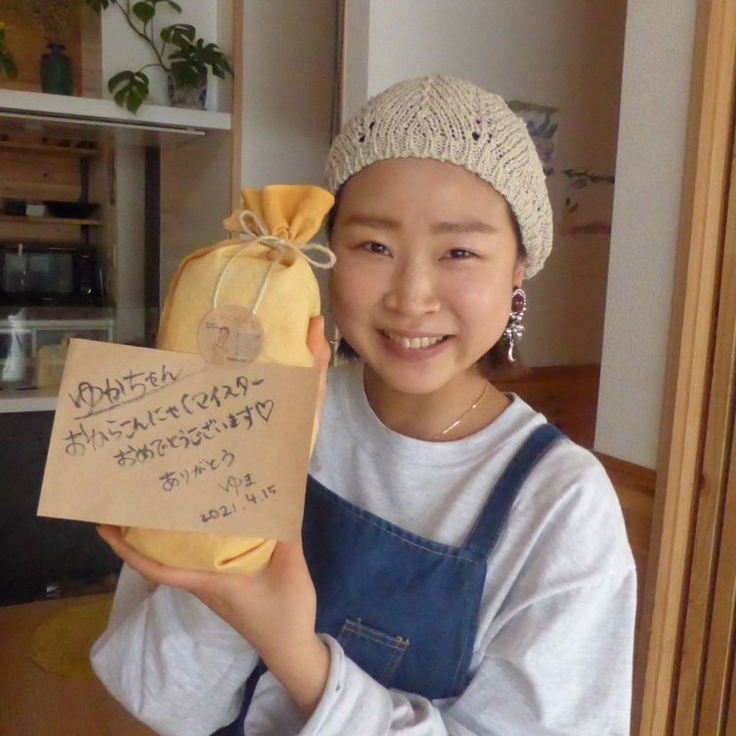 ゆかちゃん
おからこんにゃくマイスター
おめでとうございます♡
ありがとう
ゆま
2021.4.15